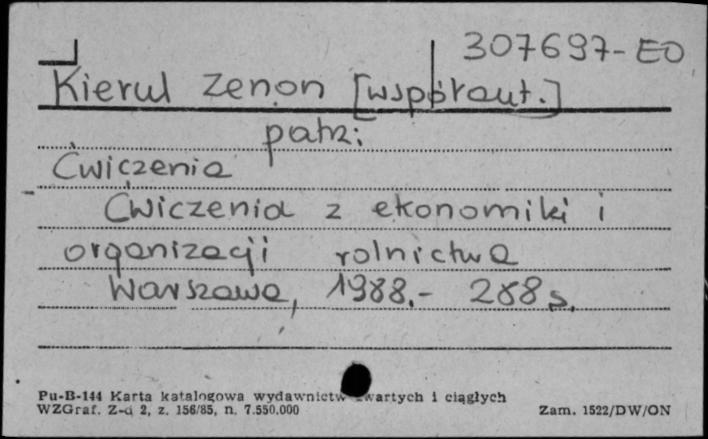 307697-EO
Kierul Zenon [współaut.]
patrz:
Ćwiczenia
Ćwiczenia z ekonomiki i
organizacji rolnictwa
Warszawa, 1988.- 288 s.
Pu-B-144 Karta katalogowa wydawnictw zwartych i ciągłych
WZGraf. Z-d 2, z. 156/85, n. 7.550.000 Zam. 1522/DW/ON